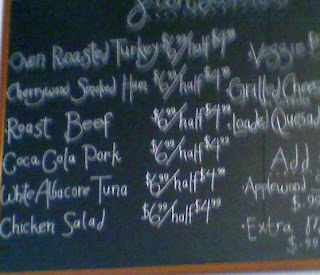 Oven Roasted Turkey $6.99/half $4.99
Cherrywood Smoked Ham $6.99/half $4.99
Roast Beef $6.99/half $4.99
Coca Cola Pork $6.99/half $4.99
White Albacore Tuna $6.99/half $4.99
Chicken Salad $6.99/half $4.99
Veggie
Grilled Cheese
Loaded Quesad
Add
Applewood
$.99
Extra
$.99